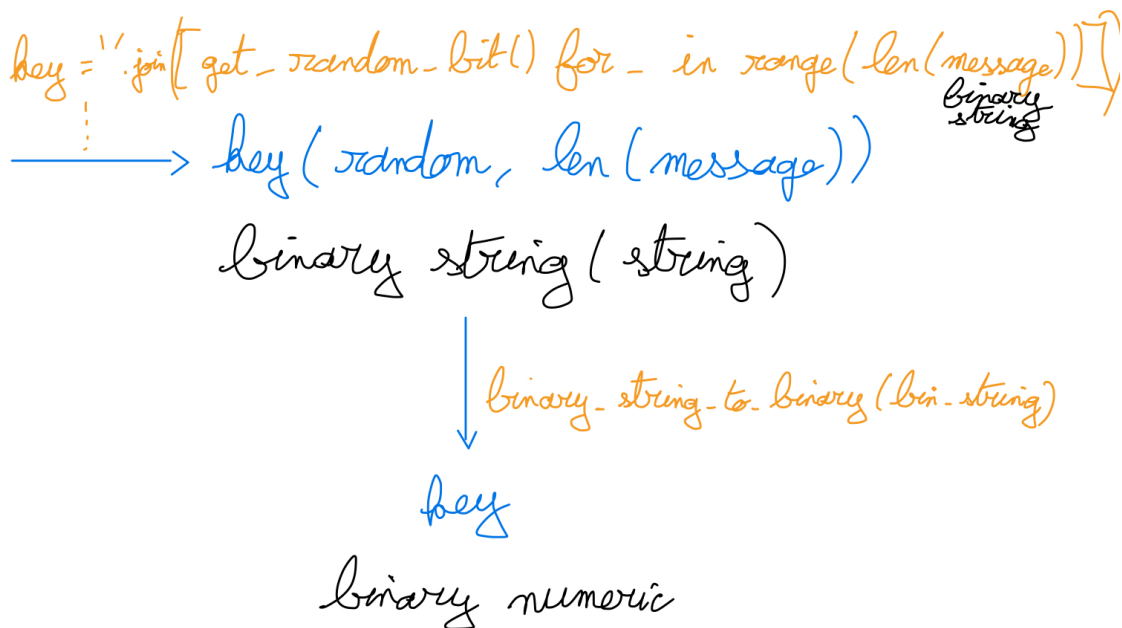 key = ''.join([get_random_bit() for _ in range(len(message))])
binary
string
key(random, len(message))
binary string(string)
binary_string_to_binary(bin_string)
key
binary numeric